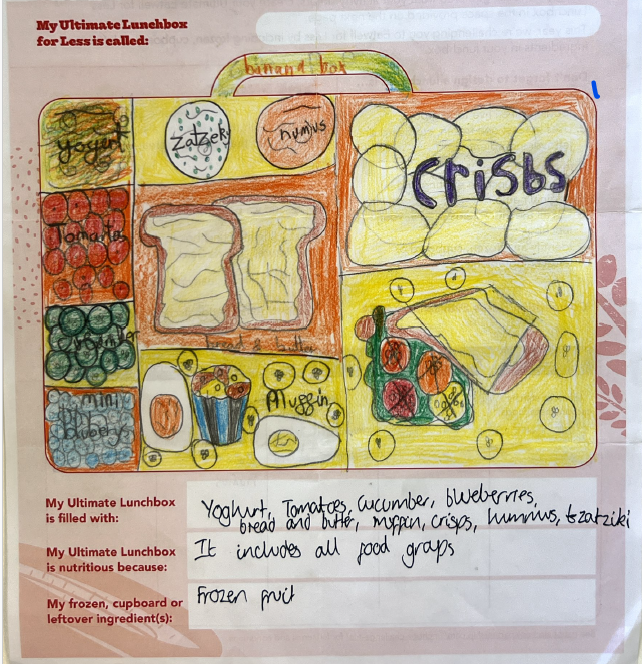 My Ultimate Lunchbox
for Less is called:
binand box
1
yogurt
zatzeki
humus
crisbs
Tomatos
cucumber
bread & butter
mini
bluberys
Muggin
My Ultimate Lunchbox
is filled with:
Yoghurt, Tomatoes, cucumber, blueberries,
bread and butter, muffin, crisps, hummus, tzatziki
My Ultimate Lunchbox
is nutritious because:
It includes all food graps
My frozen, cupboard or
leftover ingredient(s):
Frozen fruit